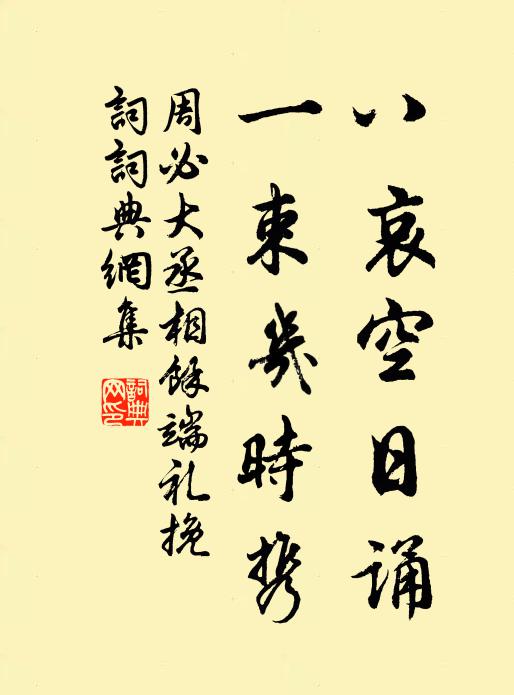 八哀空日誦
一束幾時攜
周必大丞相餘端礼挽
詞詞典網集
詞典网印